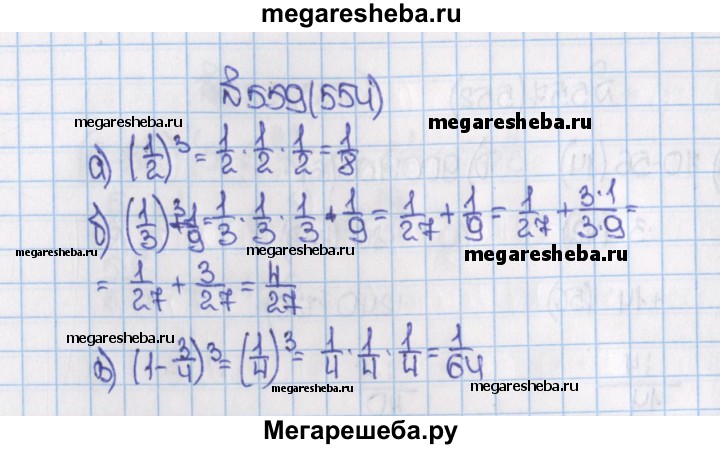 megaresheba.ru
№559(554)
megaresheba.ru
megaresheba.ru
а) (1/2)^3 = 1/2 · 1/2 · 1/2 = 1/8
б) (1/3)^3 + 1/9 = 1/3 · 1/3 · 1/3 + 1/9 = 1/27 + 1/9 = 1/27 + 3·1/3·9 =
megaresheba.ru
megaresheba.ru
megaresheba.ru
= 1/27 + 3/27 = 4/27
megaresheba.ru
в) (1 - 3/4)^3 = (1/4)^3 = 1/4 · 1/4 · 1/4 = 1/64
megaresheba.ru
megaresheba.ru
Мегарешеба.ру